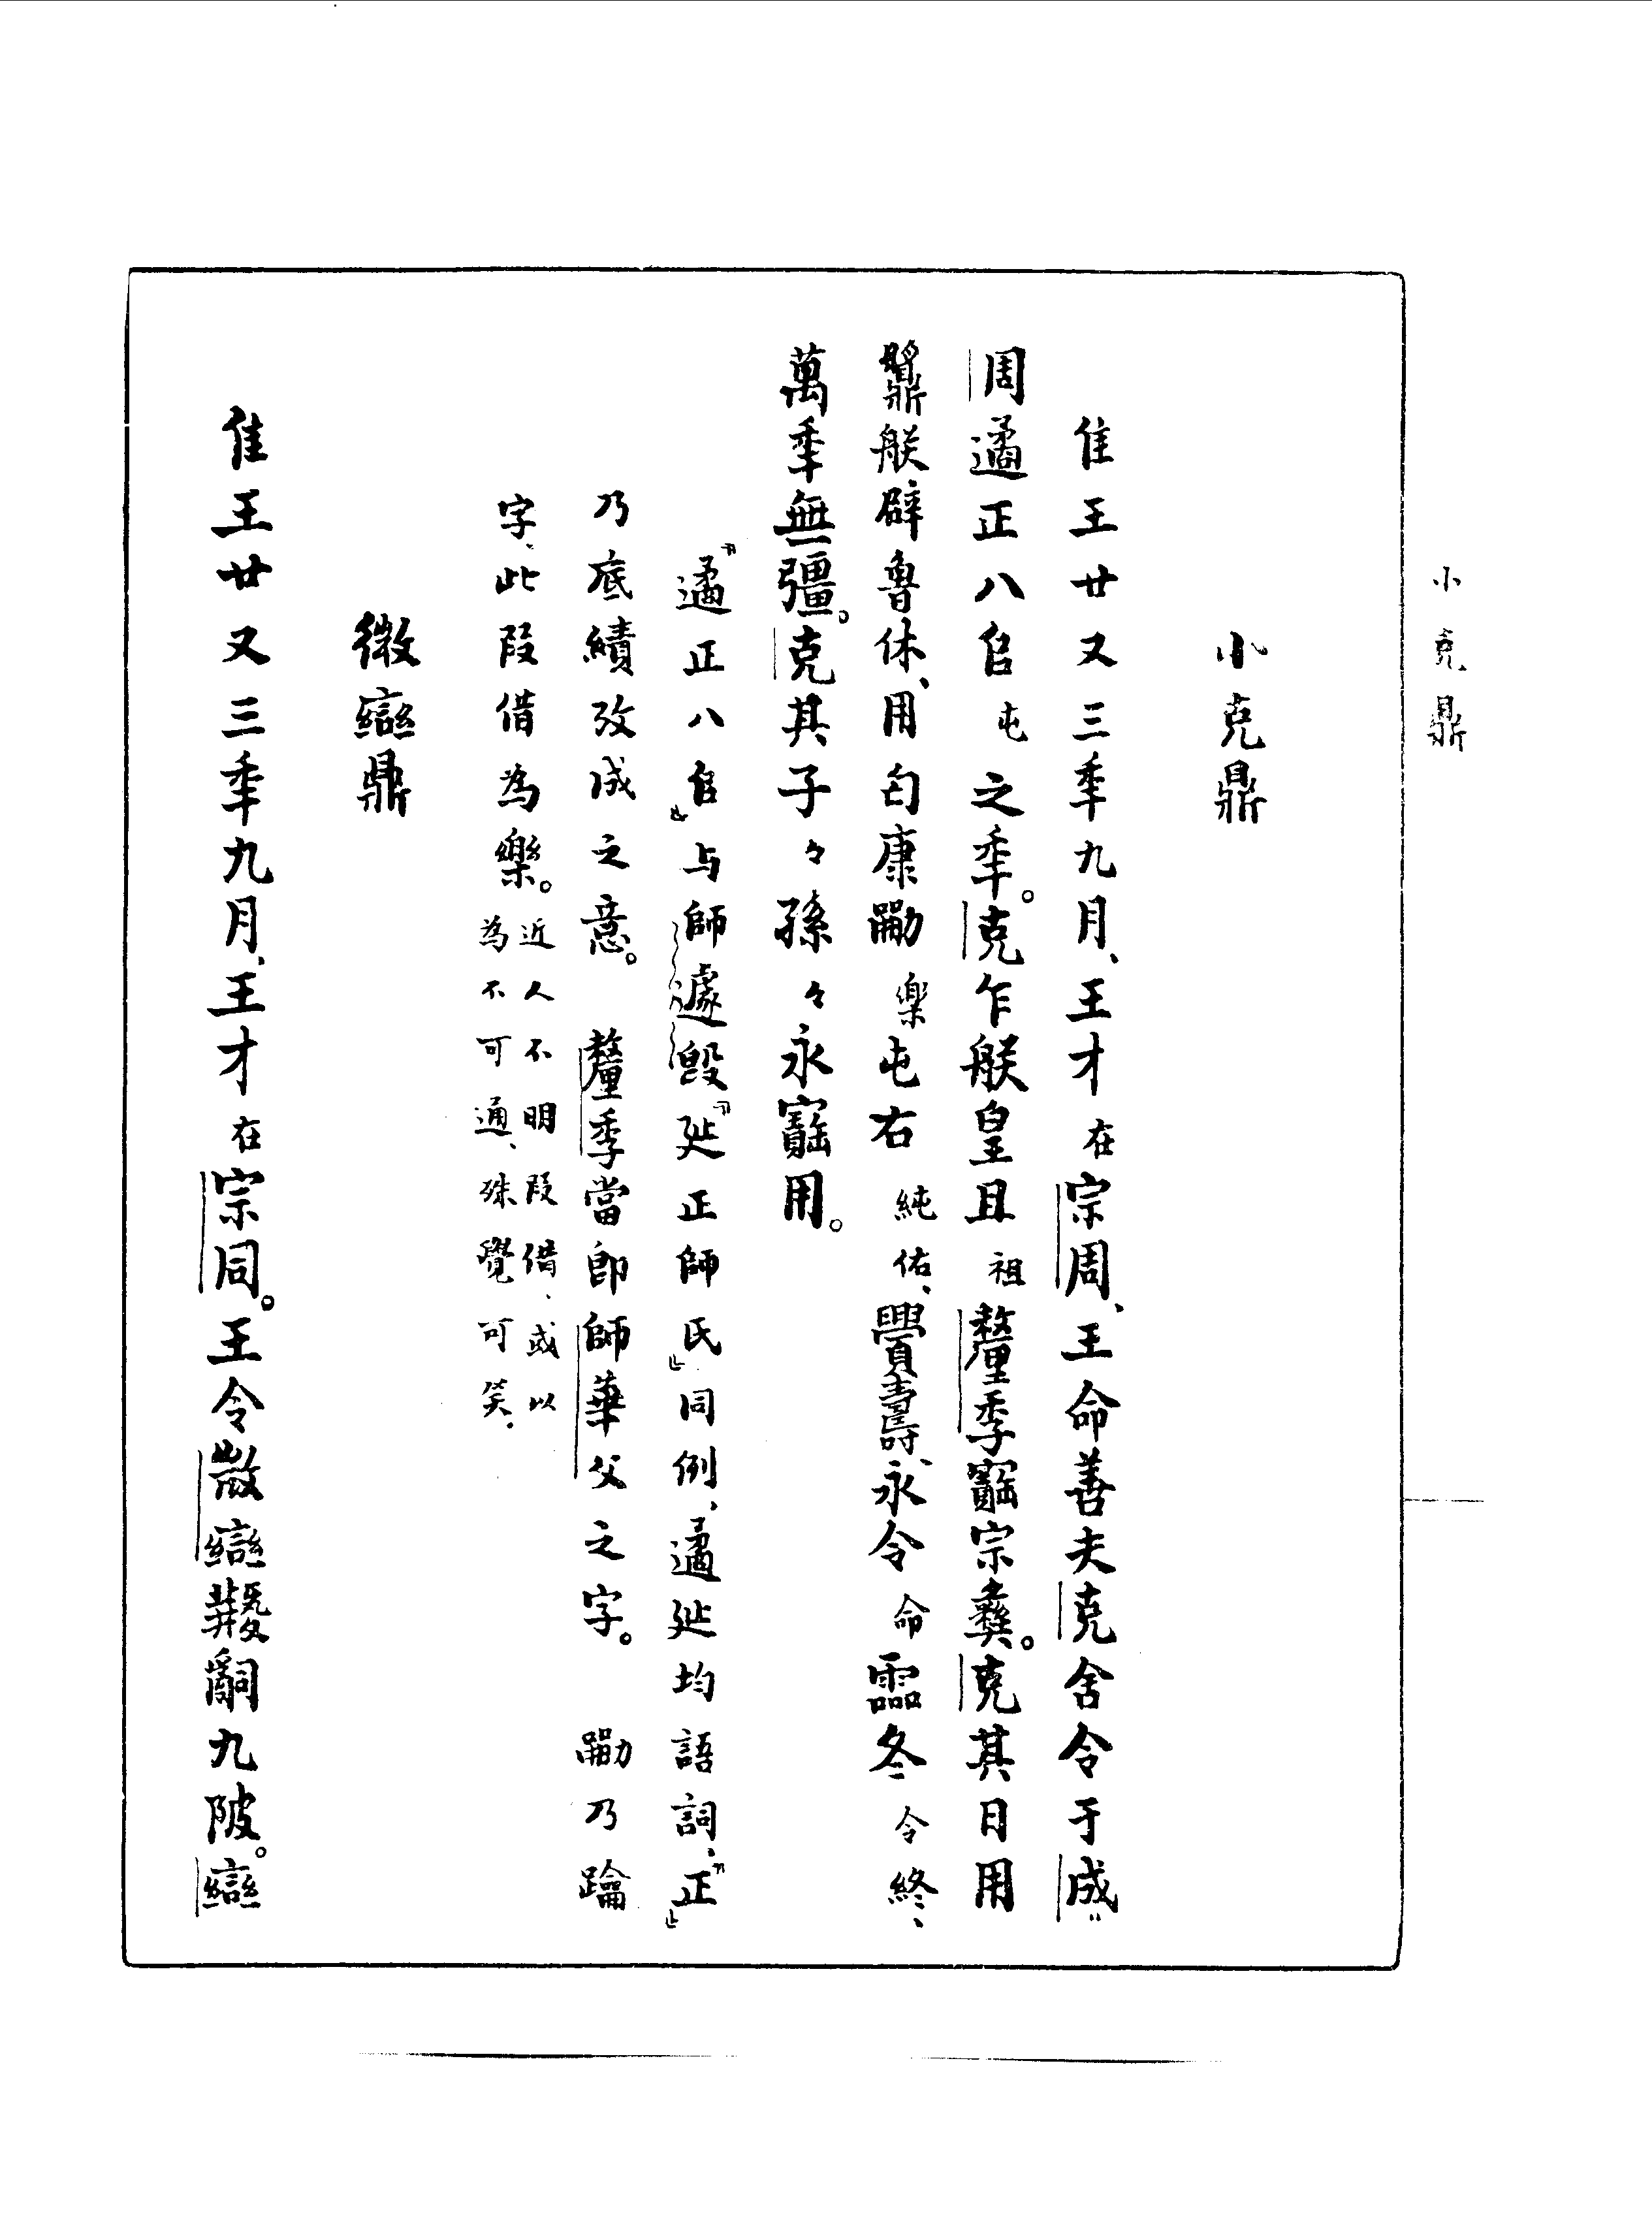 小克鼎
小克鼎
隹王廿又三秊九月、王才在宗周、王命善夫克舍令于成
周遹正八𠂤屯之秊。克乍朕皇且祖釐季寶宗彝。克其日用
䵼朕辟魯休、用匄康勵樂屯右純佑、眉壽、永令命霝冬令終、
萬秊無彊。克其子々孫々永寶用。
『遹正八𠂤』与師遽𣪘『延正師氏』同例、遹延均語詞、『正』
乃底績攷成之意。 釐季當即師華父之字。 勵乃龠
字、此叚借為樂。近人不明叚借、或以
為不可通、殊覺可笑.
微䜌鼎
隹王廿又三秊九月、王才在宗同。王令㪔䜌𤔲九陂。䜌